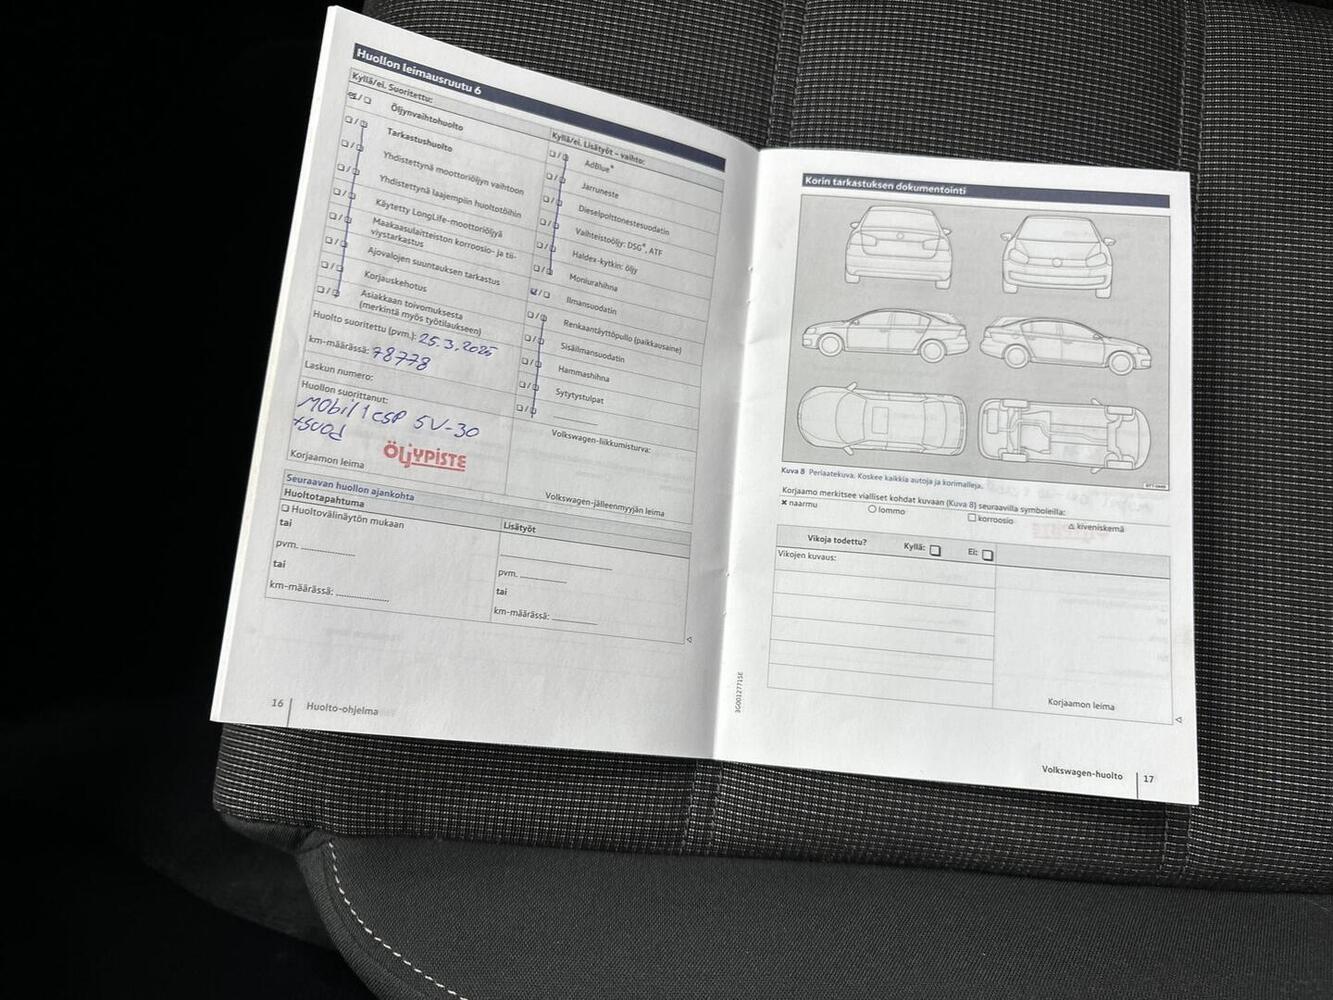 Huollon leimausruutu 6
Kyllä/ei. Suoritettu:
Öljynvaihtohuolto
Tarkastushuolto
Yhdistettynä moottoriöljyn vaihtoon
Yhdistettynä laajempiin huoltotöihin
Käytetty LongLife-moottoriöljyä
Maakaasulaitteiston korroosio- ja tii-
viystarkastus
Ajovalojen suuntauksen tarkastus
Korjauskehotus
Asiakkaan toivomuksesta
(merkintä myös työtilaukseen)
Huolto suoritettu (pvm.): 25.3.2025
km-määrässä: 78778
Laskun numero:
Huollon suorittanut:
Mobil 1 ESP 5V-30
Korjaamon leima
ÖLJYPISTE
Kyllä/ei. Lisätyöt – vaihto:
AdBlue®
Jarruneste
Dieselpolttonestesuodatin
Vaihteistoöljy: DSG®, ATF
Haldex-kytkin: öljy
Moniurahihna
Ilmansuodatin
Renkaantäyttöpullo (paikkausaine)
Sisäilmansuodatin
Hammashihna
Sytytystulpat
Volkswagen-liikkumisturva:
Volkswagen-jälleenmyyjän leima
Seuraavan huollon ajankohta
Huoltotapahtuma
Huoltovälinäytön mukaan
tai
pvm.
tai
km-määrässä:
Lisätyöt
pvm.
tai
km-määrässä:
16
Huolto-ohjelma
Korin tarkastuksen dokumentointi
Kuva 8 Periaatekuva. Koskee kaikkia autoja ja korimalleja.
Korjaamo merkitsee vialliset kohdat kuvaan (Kuva 8) seuraavilla symboleilla:
× naarmu
lommo
korroosio
kiveniskemä
Vikoja todettu?
Kyllä:
Ei:
Vikojen kuvaus:
Korjaamon leima
3G0012771SE
Volkswagen-huolto
17